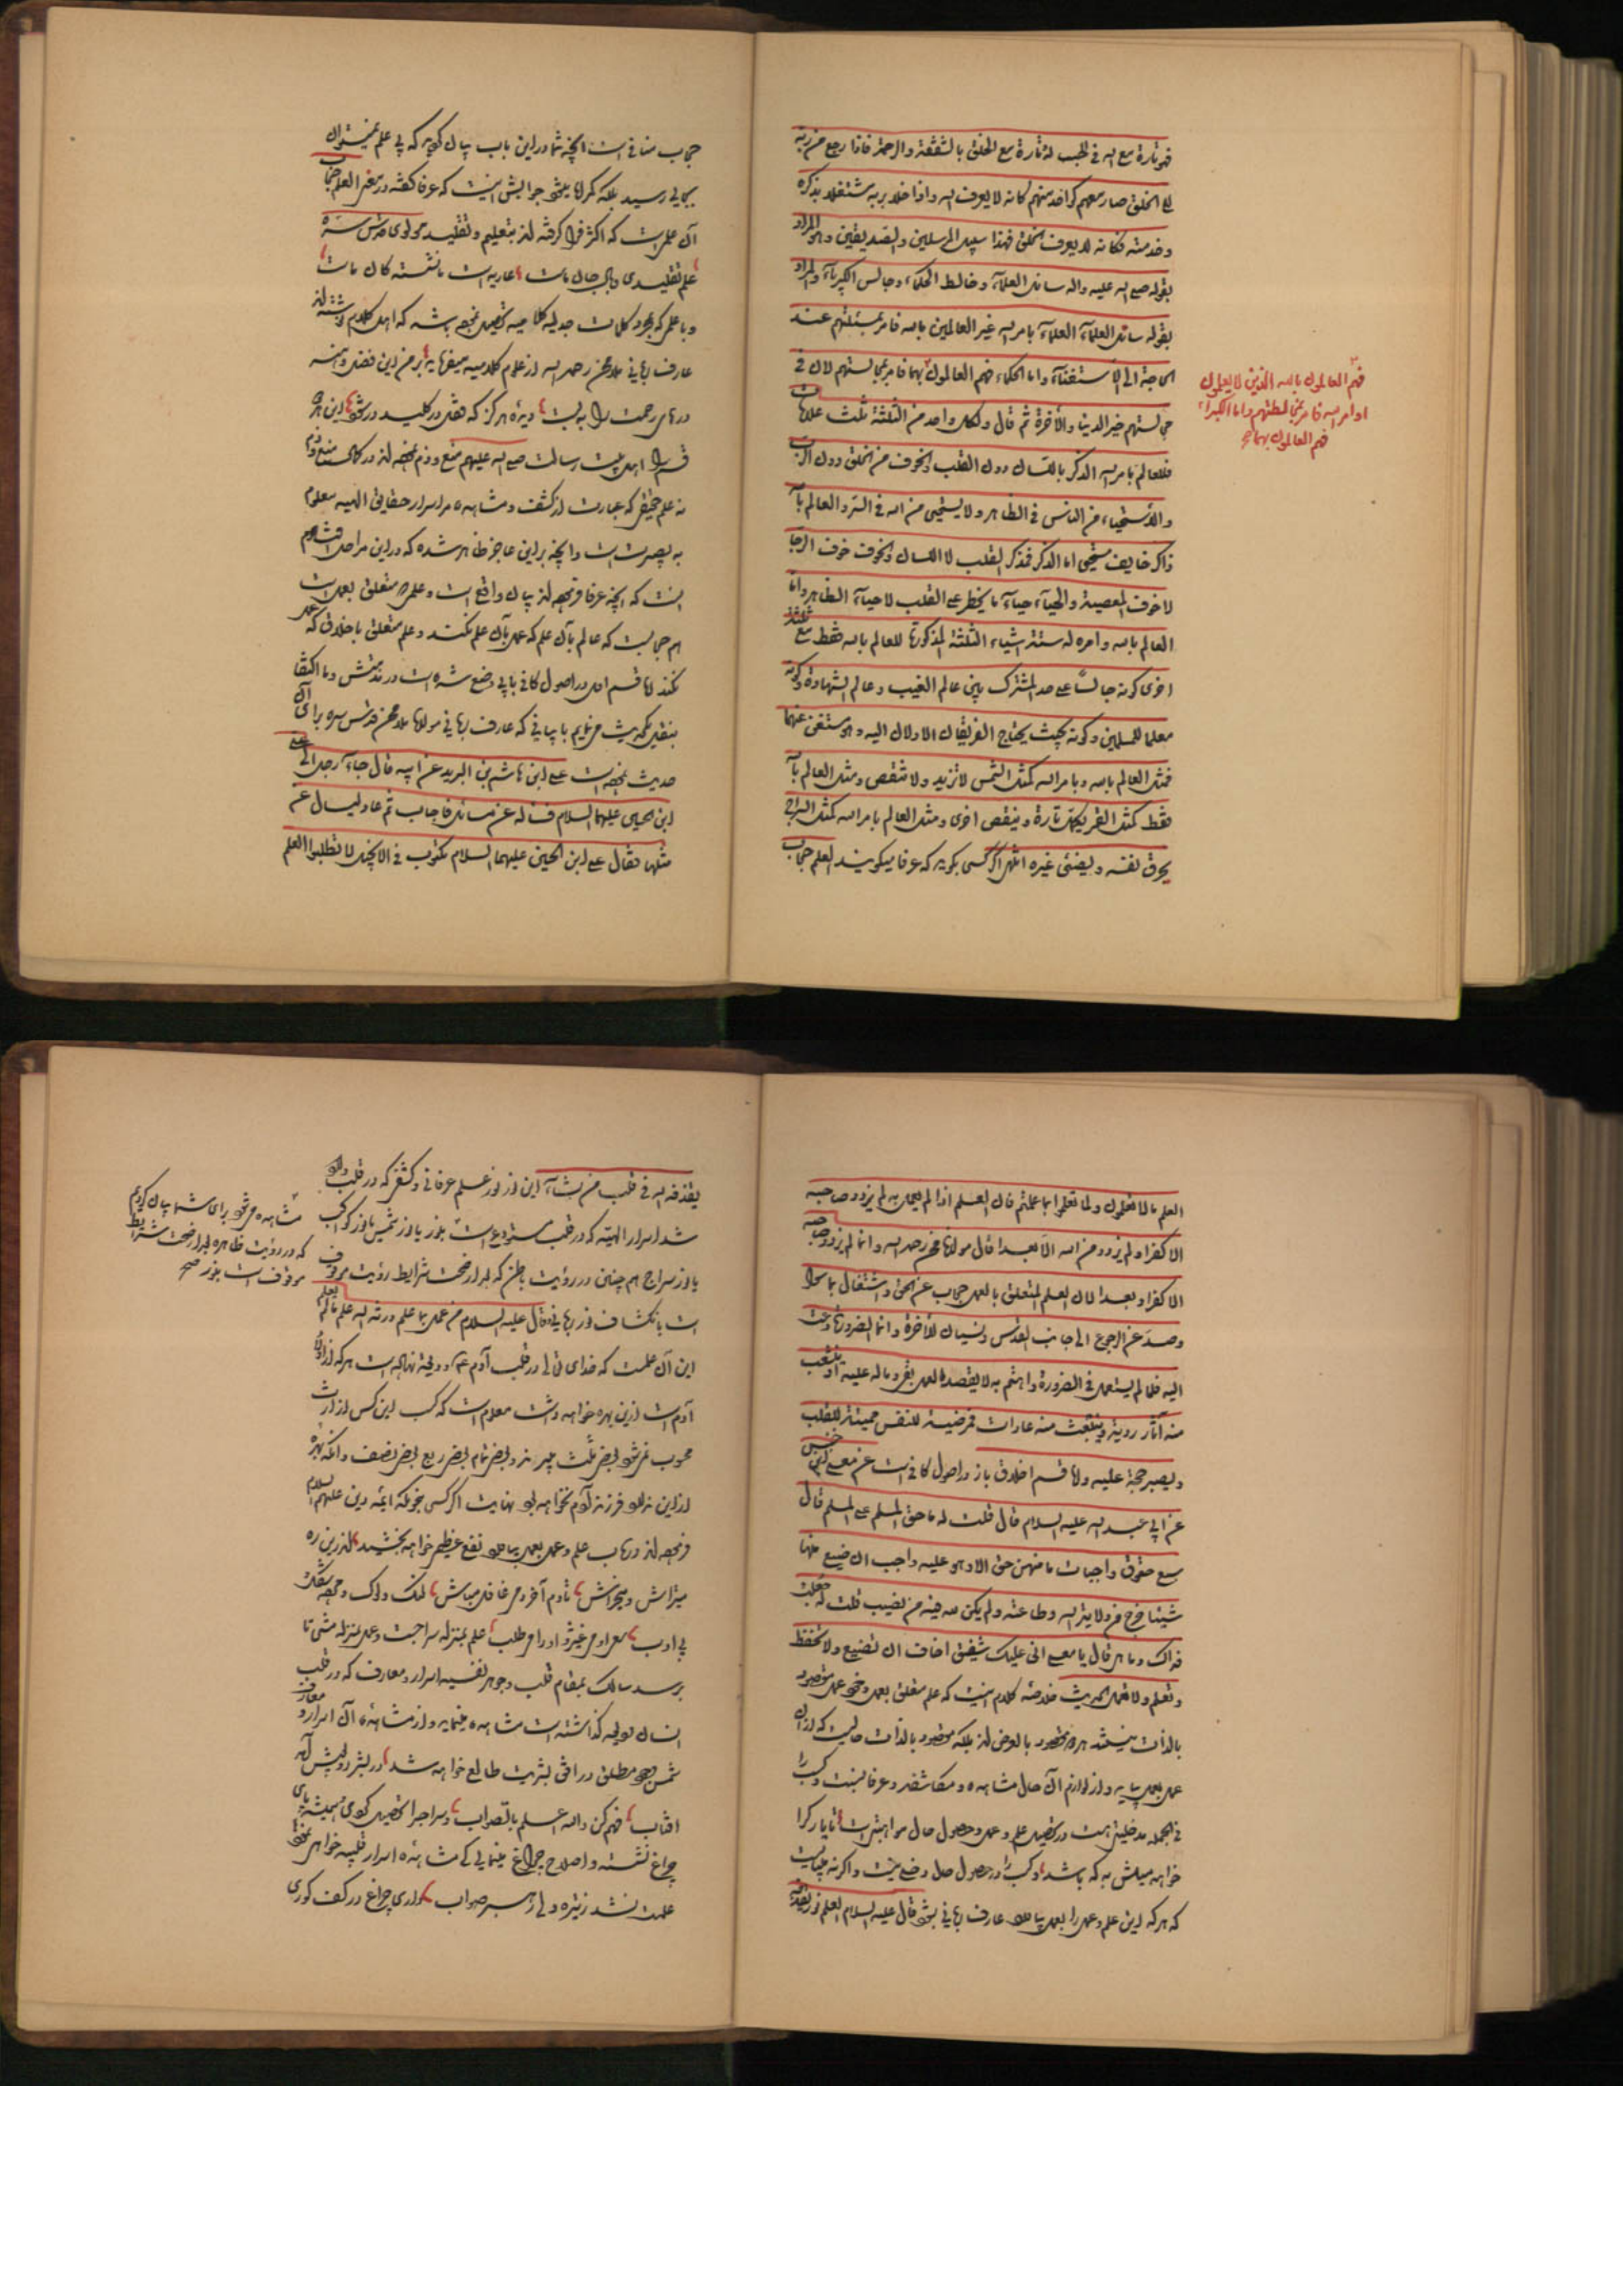 فهو تارة مع الله في الحب له و تارة مع الخلق بالشفقة والرحمة فاذا رجع من ربه
الی الخلق صار معهم کواحد منهم کانه لا یعرف الله واذا خلا بربه مشتغلا بذکره
وخدمته فکانه لا یعرف الخلق فهذا سبیل المرسلین والصدیقین وهو المراد
بقوله صلی الله علیه واله سائل العلمآء وخالط الحکمآء وجالس الکبرآء والمراد
بقوله سائل العلمآء العلمآء بامر الله غیر العالمین بالله فامر بمسئلتهم عند
الحاجة الی الاستفتآء واما الحکمآء فهم العالمون بهما فامر بمجالستهم لان فی
مجالستهم خیر الدنیا والآخرة ثم قال ولکل واحد من الثلثة ثلث علامات
فللعالم بامر الله الذکر باللسان دون القلب والخوف من الخلق دون الرب
والاستحیاء من الناس فی الظاهر ولا یستحیی من الله فی السر والعالم بالله
ذاکر خایف مستحیی اما الذکر فذکر القلب لا اللسان والخوف خوف الرجا
لا خوف المعصیة والحیآء حیآء ما یخطر علی القلب لا حیآء الظاهر واما
العالم بالله وامره له ستة اشیاء الثلثة المذکورة للعالم بالله فقط مع ثلثة
اخری کونه جالسًا علی حد المشترک بین عالم الغیب وعالم الشهادة وکونه
معلما للمسلمین وکونه بحیث یحتاج الفریقان الاولان الیه وهو مستغن عنهما
فمثل العالم بالله وبامر الله کمثل الشمس لا تزید ولا تنقص ومثل العالم بالله
فقط کمثل القمر یکمل تارة وینقص اخری ومثل العالم بامر الله کمثل السراج
یحرق نفسه ویضئی غیره انتهی اگر کسی بگوید که عرفا میگویند العلم حجاب
فهم العالمون بالله الذین لا یعلمون
اوامر الله فامر بمخالطتهم واما الکبرآء
فهم العالمون بهما صح
حجاب منافی است آنچه شما در این باب بیان کردید که بی علم نمیتوان
بجایی رسید بلکه گمراه میشود جوابش اینست که عرفا گفته در معنی العلم حجاب
آن علم است که اکثر فرا گرفته اند بتعلیم و تقلید مولوی قدس سره
علم تقلیدی وبال جان ماست عاریه است ما نشسته کان ماست
و با علم که بمجرد کلمات جدلیه کلامیه تحصیل نموده باشد که اهل کلام نوشته اند
عارف ربانی ملا محسن رحمه الله از علوم کلامیه میفرماید بر من این فضل و هنر
درهای رحمت را به بست دیده هرگز که قفل در کلید در شود این هر دو
قسم را اهل بیت رسالت صلی الله علیهم منع و ذم نموده اند در کمال منع و ذم
نه علم حقیقی که عبارت از کشف و مشاهده مر اسرار حقایق الهیه معلوم
به بصیرت است و آنچه بر این عاجز ظاهر شده که در این مراحل افتاده ام
اینست که آنچه عرفا فرموده اند بیان واقع است و علمی متعلق بعمل است
هم حجابست که عالم بآن علم که عمل بآن علم نکند و علم متعلق باخلاق که عمل
نکند اما قسم اول در اصول کافی بابی وضع شده است در مذمتش و ما اکتفا
بنقل یک حدیث می نمایم با بیانی که عارف ربانی مولانا ملا محسن قدس سره برای آن
حدیث نموده است علی ابن هاشم بن البرید عن ابیه قال جآء رجل الی علی
ابن الحسین علیهما السلام فسئله عن مسائل فاجاب ثم عاد لیسال عن
مثلها فقال علی ابن الحسین علیهما السلام مکتوب فی الانجیل لا تطلبوا العلم
العلم ما لا تعلمون ولما تعملوا بما علمتم فان العلم اذا لم یعمل به لم یزدد صاحبه
الا کفرا ولم یزدد من الله الا بعدا قال مولانا محسن رحمه الله وانما لم یزدد صاحبه
الا کفرا وبعدا لان العلم المتعلق بالعمل حجاب عن الحق واشتغال بما سواه
وصد عن الرجوع الی جانب القدس ونسیان للآخرة وانما الضرورة دعت
الیه فلما لم یستعمل فی الضرورة واهتم به لا بقصد العمل بقی وباله علیه
منه آثار ردیة وینبعث منه عادات ممرضیة للنفس ممیتة للقلب
ویصیر حجة علیه واما قسم اخلاق باز در اصول کافی است عن معلی بن خنیس
عن ابی عبد الله علیه السلام قال قلت له ما حق المسلم علی المسلم قال
سبع حقوق واجبات ما منهن حق الا وهو علیه واجب ان ضیع منها
شیئا خرج من ولایة الله وطاعته ولم یکن لله فیه من نصیب قلت له جعلت
فداک وما هی قال یا معلی انی علیک شفیق اخاف ان تضیع ولا تحفظ
وتعلم ولا تعمل الحدیث خلاصه کلام اینست که علم متعلق بعمل و خود عمل مقصود
بالذات نیستند هر دو مقصود بالعرض اند بلکه مقصود بالذات حالیست که از آن
عمل بعمل بیاید و از لوازم آن حال مشاهده و مکاشفه و عرفا نیست و کسب را
فی الجمله مدخلیتی هست در تحصیل علم و عمل و حصول حال مواهبتی است تا یار کرا
خواهد میلش به که باشد و کسب را در حصول حال وضعی نیست و اگر نه چنانست
که هر که این علم و عمل را بعمل بیاورد عارف ربانی بشود قال علیه السلام العلم نور یقذفه
یقذفه الله فی قلب من یشآء این نور نور علم عرفانی و کشفی که در قلب
شد اسرار الهیه که در قلب مستودع است بنور یا نور شمس یا نور کواکب
یا نور سراج هم چنین در رؤیت باطن که بعد از صحت شرایط رؤیت موقوف
است بانکشاف نور ربانی و قال علیه السلام من عمل بما علم ورثه الله علم ما لم یعلم
این آن علمست که خدای تعالی در قلب آدم ع ودیعة نهاده است هر که از اولاد
آدم است ازین بهره خواهد داشت معلوم است که کسب این کس از ارث
محروب نمی شود بعضی ثلث میبرند و بعضی تمام بعضی ربع بعضی نصف و آنکه بهره
ازین ندارد فرزند آدم نخواهد بود نهایت اگر کسی بنحویکه ائمه دین علیهم السلام
فرموده اند در باب علم و عمل بعمل بیاورد نفع عظیم خواهد بخشید اندرین ره
میتراش و میخراش تا دم آخر دمی غافل مباش لنگ و لوک و خفته شکل
بی ادب سوی او می غیژ و او را می طلب علم بمنزله سراجست و عمل بمنزله مشی تا
برسد سالک بمقام قلب و جوهر نفسیه اسرار و معارف که در قلب
انسان ودیعه گذاشته است مشاهده مینماید و از مشاهده آن اسرار و معارف
شمس وجود مطلق در افق بشریت طالع خواهد شد در بشر روپوش آمد
افتاب فهم کن والله اعلم بالصواب و سراج را تحصیل کردی همیشه در پای
چراغ نشسته و اصلاح چراغ مینمایی کی مشاهده اسرار قلبیه خواهی نمود
علمت نشد زتیره دلی رهبر صواب داری چراغ در کف کوری
مشاهده می شود برای شما بیان کردم
که در رؤیت ظاهره بعد از صحت شرایط
موقوف است بنور صح